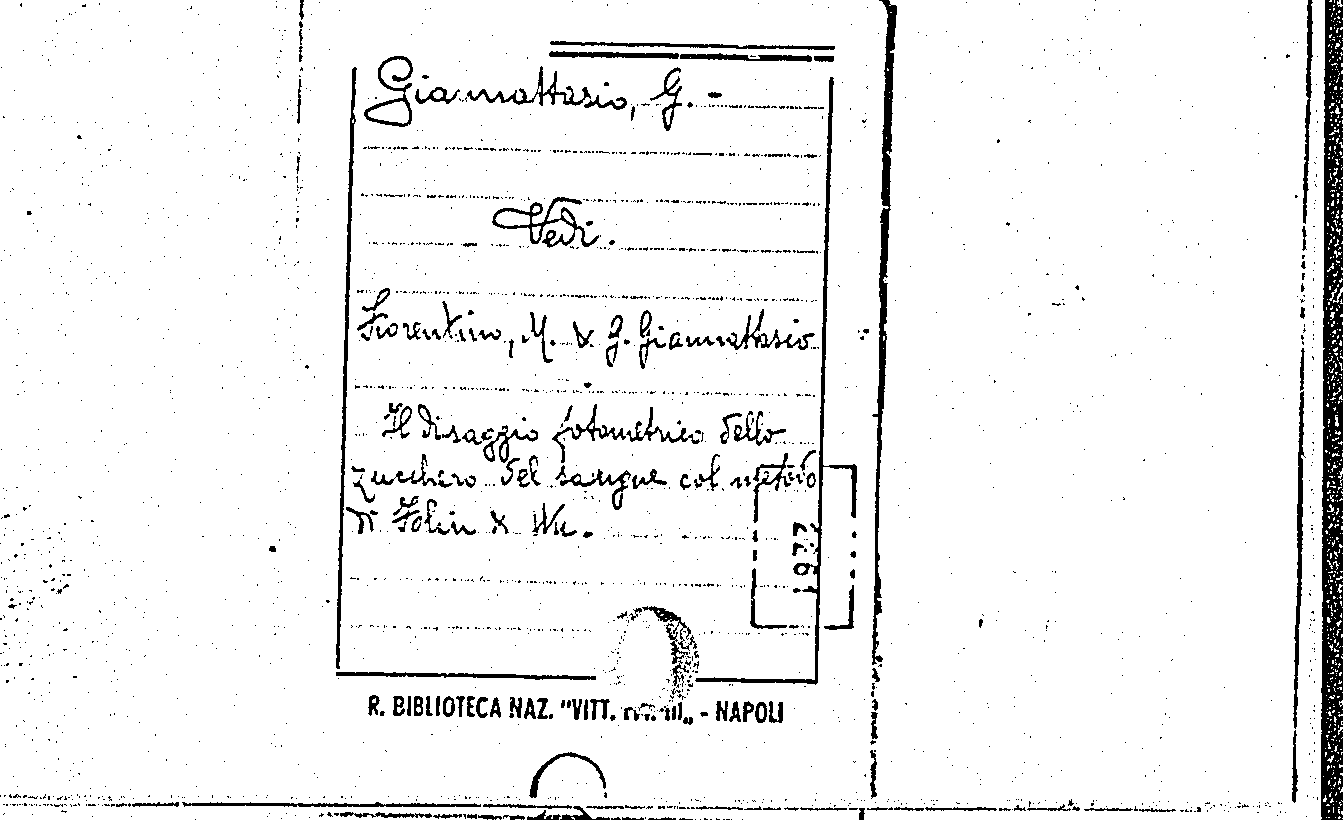 Giannattasio, G. -
Vedi.
Fiorentino, M. & G. Giannattasio
Il disaggio fotometrico dello
zucchero del sangue col metodo
di Folin & Wu.
1977
R. BIBLIOTECA NAZ. "VITT. EM. III„ - NAPOLI